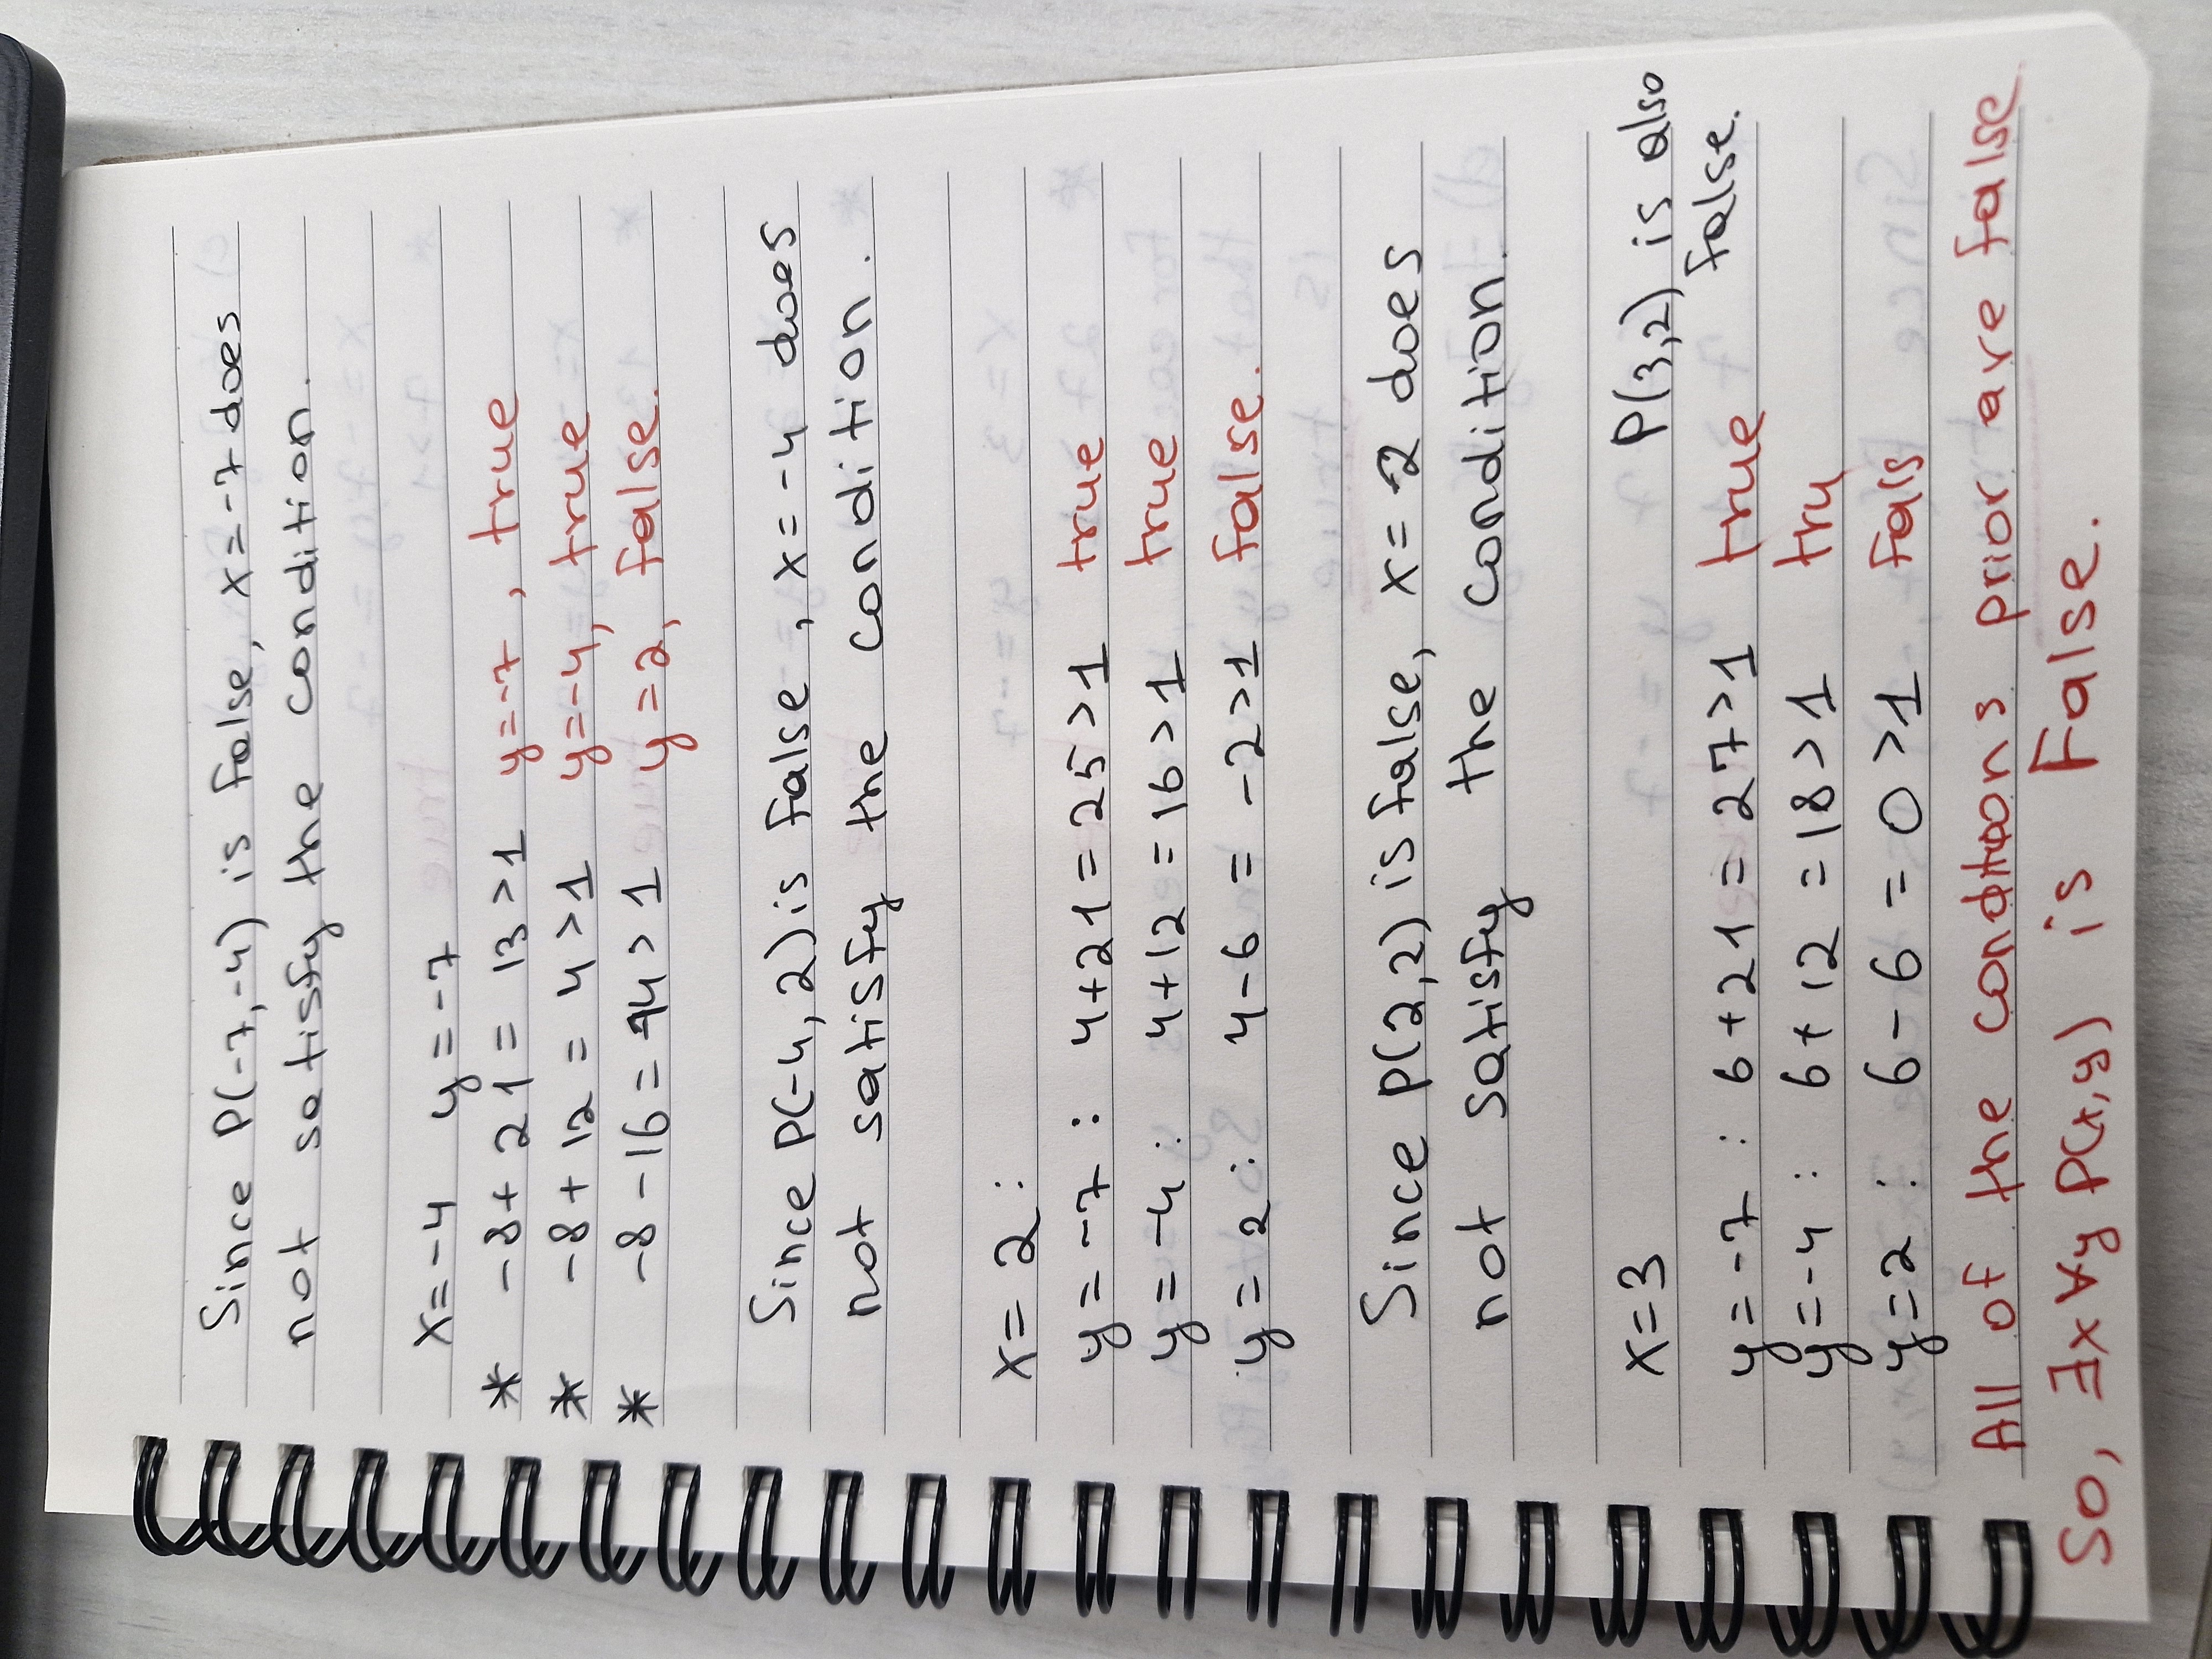 Since P(-7,-4) is false, x=-7 does
not satisfy the condition.
x=-4 y=-7
* -8+21 = 13>1 y=-7, true
* -8+12 = 4>1 y=-4, true
* -8-16 = -14>1 y=2, false.
Since P(-4,2) is false, x=-4 does
not satisfy the condition.
x=2:
y=-7: 4+21=25>1 true
y=-4: 4+12=16>1 true
y=2: 4-6 = -2>1 false.
Since P(2,2) is false, x=2 does
not satisfy the condition.
x=3 P(3,2) is also
false.
y=-7: 6+21=27>1 true
y=-4: 6+12=18>1 tru
y=2: 6-6=0>1 fals
All of the conditions prior are false
So, ∃x∀y P(x,y) is False.